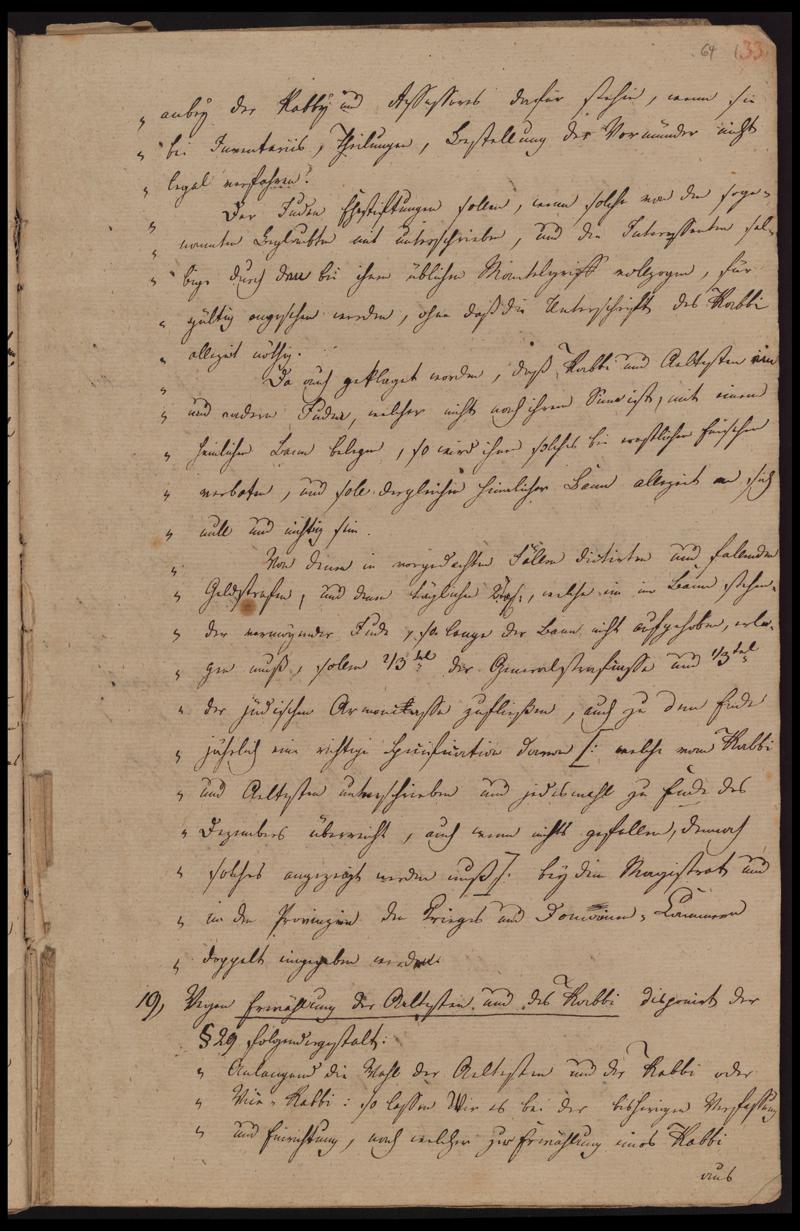 64 133
„ anbey der Rabby und Assessores dafür stehen, wenn sie
„ bei Inventariis, Theilungen, Bestellung der Vormünder nicht
„ legal verfahren.
„ Der Juden Ehestiftungen sollen, wenn solche von den soge-
„ nannten Beglaubten mit unterschrieben, und den Interessenten sel-
„ bige durch den bei ihnen üblichen Mantelgriff vollzogen, für
„ gültig angesehen werden, ohne daß die Unterschrift des Rabbi
„ allezeit nöthig.
„ Da auch geklaget worden, daß Rabbi und Aeltesten ein
„ und andern Juden, welcher nicht nach ihrem Sinn ist, mit einem
„ heimlichen Bann belegen, so wird ihnen solches bei
„ verboten, und soll dergleichen heimlicher Bann allezeit an sich
„ null und nichtig sein.
„ Von denen in vorgedachten Fällen dictirten und fallenden
„ Geldstrafen, und denen täglichen welche ein im Bann stehen-
„ der vermögender Jude, so lange der Bann nicht aufgehoben, erle-
„ gen muß, sollen 2/3tel der Generalstrafcasse und 1/3tel
„ der jüdischen Armenkasse zufließen, auch zu dem Ende
„ jährlich eine richtige Specification davon /: welche vom Rabbi
„ und Aeltesten unterschrieben und jedesmahl zu Ende des
„ Dezembers überreicht, auch wenn nichts gefallen, dennoch
„ solches angezeigt werden muß :/ bey dem Magistrat und
„ in den Provinzien den Krieges und Domainen-Cammern
„ doppelt eingegeben werden.
19, Wegen Erwählung der Aeltesten und des Rabbi disponirt der
§ 29 folgendergestalt:
„ Anlangend die Wahl der Aeltesten und der Rabbi oder
„ Vice-Rabbi: so lassen Wir es bei der bisherigen Verfassung
„ und Einrichtung, nach welcher zur Erwählung eines Rabbi
aus